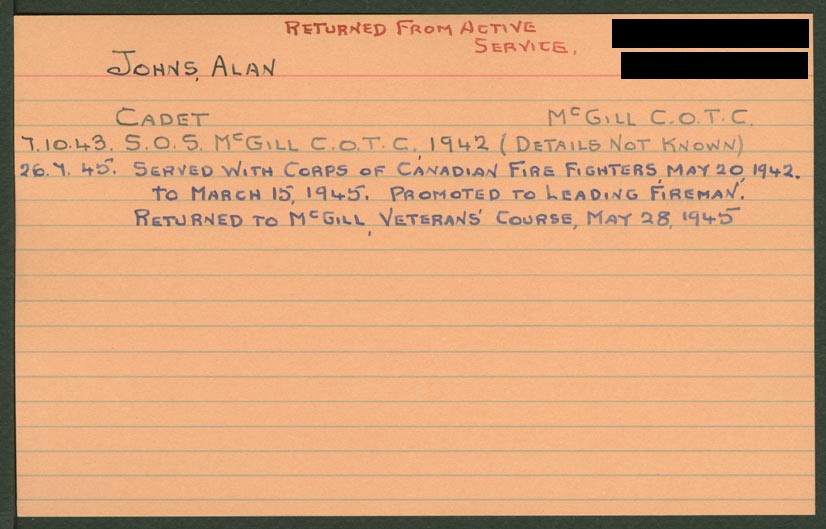 RETURNED FROM ACTIVE
SERVICE.
JOHNS, ALAN
CADET McGILL C.O.T.C.
7.10.43. S.O.S. McGILL C.O.T.C. 1942 (DETAILS NOT KNOWN)
26.7.45. SERVED WITH CORPS OF CANADIAN FIRE FIGHTERS MAY 20, 1942.
TO MARCH 15, 1945. PROMOTED TO LEADING FIREMAN.
RETURNED TO McGILL, VETERANS' COURSE, MAY 28, 1945